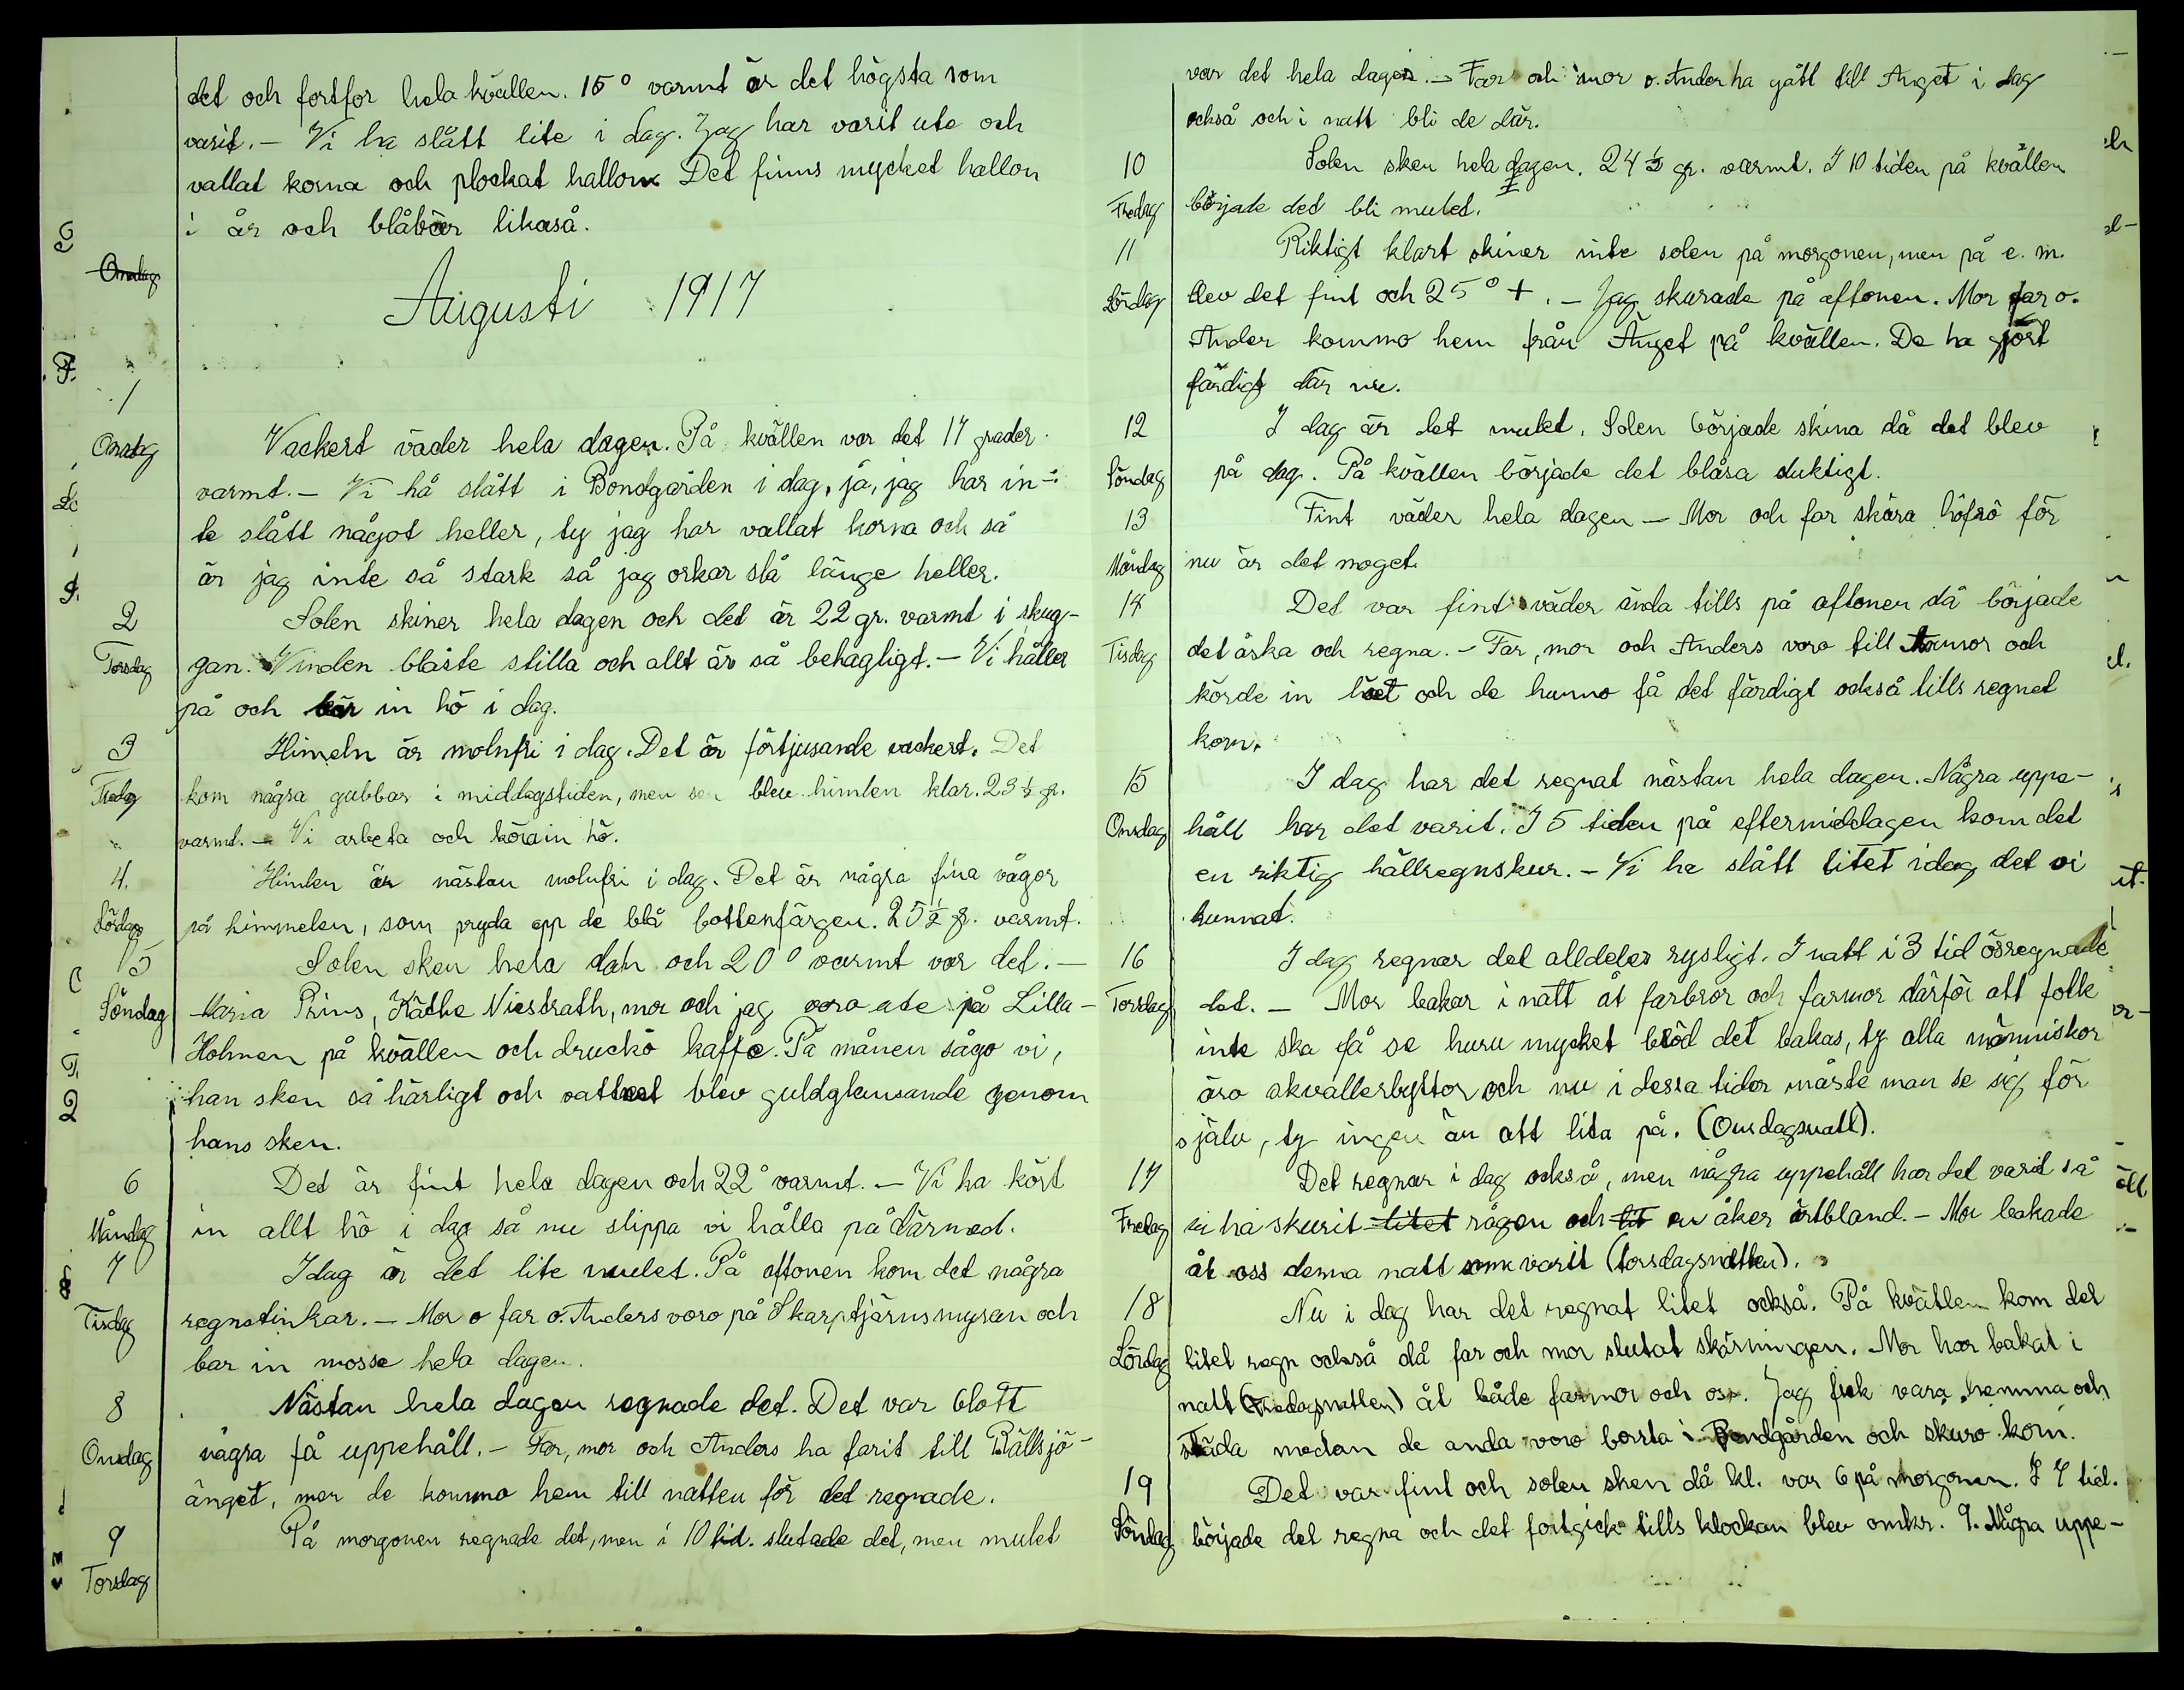 det och fortfor hela kvällen. 15° varmt är det högsta som
varit. — Vi ha slått lite i dag. Jag har varit ute och
vallat korna och plockat hallon. Det finns mycket hallon
i år och blåbär likaså.
Onsdag
Augusti 1917
1
Onsdag
Vackert väder hela dagen. På kvällen var det 17 grader
varmt. — Vi hå slått i Bondgården i dag, ja, jag har in-
te slått något heller, ty jag har vallat korna och så
är jag inte så stark så jag orkar slå länge heller.
2
Torsdag
Solen skiner hela dagen och det är 22 gr. varmt i skug-
gan. Vinden blåste stilla och allt är så behagligt. — Vi håller
på och bär in hö i dag.
3
Fredag
Himeln är molnfri i dag. Det är förtjusande vackert. Det
kom några gubbar i middagstiden, men sen blev himlen klar. 23 ½ gr.
varmt. — Vi arbeta och köra in hö.
4.
Lördag
Himlen är nästan molnfri i dag. Det är några fina vågor
på himmelen, som pryda opp de blå bottenfärgen. 25 ½ gr. varmt.
5
Söndag
Solen sken hela dah och 20° varmt var det. —
Maria Prins, Käthe Niestrath, mor och jag voro ute på Lilla-
Holmen på kvällen och druckö kaffe. På månen sågo vi,
han sken så härligt och vattnet blev guldglensande genom
hans sken.
6
Måndag
Det är fint hela dagen och 22° varmt. — Vi ha kört
in allt hö i dag så nu slippa vi hålla på därmed.
7
Tisdag
Idag är det lite mulet. På aftonen kom det några
regnstinkar. — Mor o far o. Anders voro på Skarptjärnsmyran och
bar in mosse hela dagen.
8
Onsdag
Nästan hela dagen regnade det. Det var blott
några få uppehåll. — Far, mor och Anders ha farit till Rällsjö-
änget, men de kommo hem till natten för det regnade.
9
Torsdag
På morgonen regnade det, men i 10 tid. slutade det, men mulet
var det hela dagen. — Far och mor o. Ander ha gått till Änget i dag
också och i natt bli de där.
10
Fredag
Solen sken hela dagen. 24 ½ gr. varmt. I 10 tiden på kvällen
började det bli mulet.
11
Lördag
Riktigt klart skiner inte solen på morgonen, men på e. m.
blev det fint och 25° +. — Jag skurade på aftonen. Mor far o.
Ander kommo hem från Änget på kvällen. De ha gjort
färdigt där nu.
12
Söndag
I dag är det mulet. Solen började skina då det blev
på dag. På kvällen började det blåsa duktigt.
13
Måndag
Fint väder hela dagen — Mor och far skära höfrö för
nu är det moget.
14
Tisdag
Det var fint väder ända tills på aftonen då började
det åska och regna. — Far, mor och Anders voro till farmor och
körde in höet och de hunno få det färdigt också tills regnet
kom.
15
Onsdag
I dag har det regnat nästan hela dagen. Några uppe-
håll har det varit. I 5 tiden på eftermiddagen kom det
en riktig hällregnskur. — Vi ha slått litet idag det vi
kunnat.
16
Torsdag
I dag regnar det alldeles rysligt. I natt i 3 tid ösregnade
det. — Mor bakar i natt åt farbror och farmor därför att folk
inte ska få se huru mycket bröd det bakas, ty alla människor
äro skvallerbyttor och nu i dessa tider måste man se sig för
själv, ty ingen är att lita på. (Onsdagsnatt).
17
Fredag
Det regnar i dag också, men några uppehåll har det varit så
vi ha skurit litet rågen och lit en åker ärtbland. — Mor bakade
åt oss denna natt som varit (torsdagsnatten).
18
Lördag
Nu i dag har det regnat litet också. På kvällen kom det
litet regn också då far och mor slutat skärningen. Mor har bakat i
natt (Fredagsnatten) åt både farmor och oss. Jag fick vara hemma och
städa medan de andra voro borta i Bondgården och skuro korn.
19
Söndag
Det var fint och solen sken då kl. var 6 på morgonen. I 7 tid.
började det regna och det fortgick tills klockan blev omkr. 9. Några uppe-